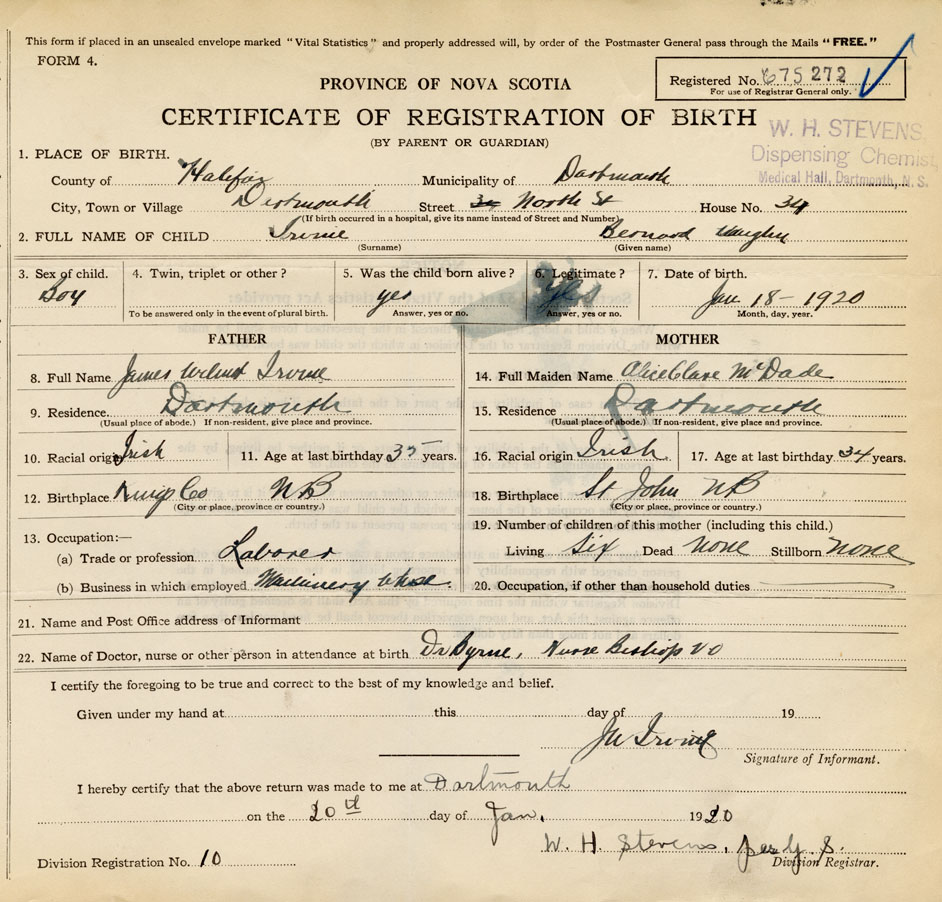 This form if placed in an unsealed envelope marked "Vital Statistics" and properly addressed will, by order of the Postmaster General pass through the Mails "FREE."
FORM 4.
Registered No. 675272
For use of Registrar General only.
PROVINCE OF NOVA SCOTIA
CERTIFICATE OF REGISTRATION OF BIRTH
(BY PARENT OR GUARDIAN)
W. H. STEVENS,
Dispensing Chemist,
Medical Hall, Dartmouth, N. S.
1. PLACE OF BIRTH.
County of Halifax Municipality of Dartmouth
City, Town or Village Dartmouth Street North St House No. 34
(If birth occurred in a hospital, give its name instead of Street and Number)
2. FULL NAME OF CHILD Irvine Bernard Vaughn
(Surname) (Given name)
3. Sex of child. 4. Twin, triplet or other? 5. Was the child born alive? 6. Legitimate? 7. Date of birth.
Boy yes yes Jan 18 - 1920
To be answered only in the event of plural birth. Answer, yes or no. Answer, yes or no. Month, day, year.
FATHER MOTHER
8. Full Name James Wilmot Irvine 14. Full Maiden Name Alice Clare McDade
9. Residence Dartmouth 15. Residence Dartmouth
(Usual place of abode.) If non-resident, give place and province. (Usual place of abode.) If non-resident, give place and province.
10. Racial origin Irish 11. Age at last birthday 35 years. 16. Racial origin Irish. 17. Age at last birthday 34 years.
12. Birthplace Kings Co NB 18. Birthplace St John NB
(City or place, province or country.) (City or place, province or country.)
19. Number of children of this mother (including this child.)
13. Occupation:—
(a) Trade or profession Laborer Living Six Dead none Stillborn none
(b) Business in which employed Machinery 20. Occupation, if other than household duties
21. Name and Post Office address of Informant
22. Name of Doctor, nurse or other person in attendance at birth Dr Byrne, Nurse Bishop
I certify the foregoing to be true and correct to the best of my knowledge and belief.
Given under my hand at this day of 19
JW Irvine
Signature of Informant.
I hereby certify that the above return was made to me at Dartmouth
on the 20th day of Jan. 1920
W. H. Stevens, per S.
Division Registration No. 10 Division Registrar.